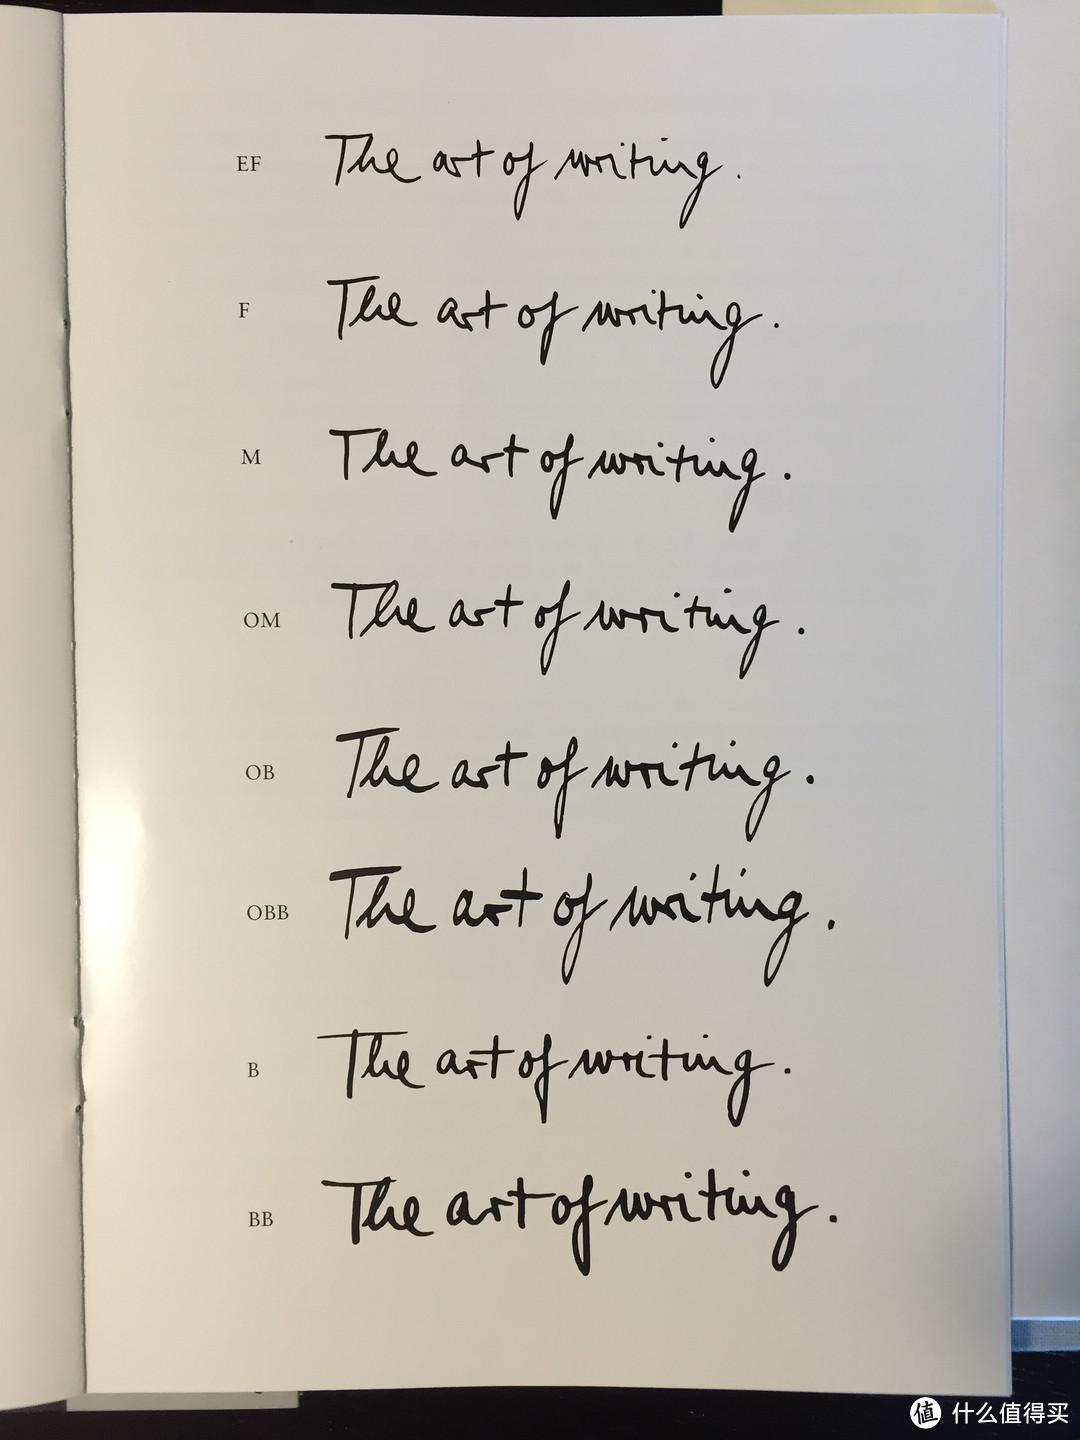 EF The art of writing.
F The art of writing.
M The art of writing.
OM The art of writing.
OB The art of writing.
OBB The art of writing.
B The art of writing.
BB The art of writing.
值 什么值得买